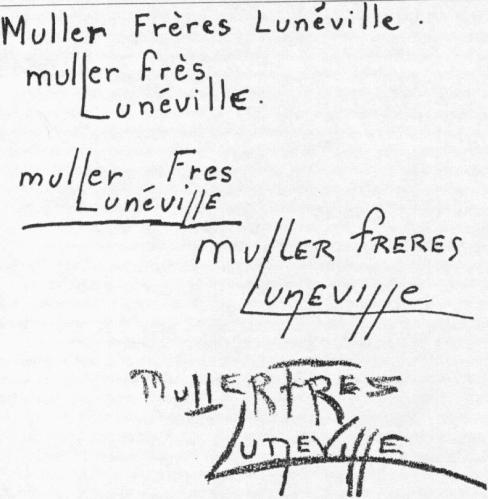 Muller Frères Lunéville.
muller Frès
Lunéville.
muller Fres
Lunéville
muller freres
Luneville
mullerfres
Luneville